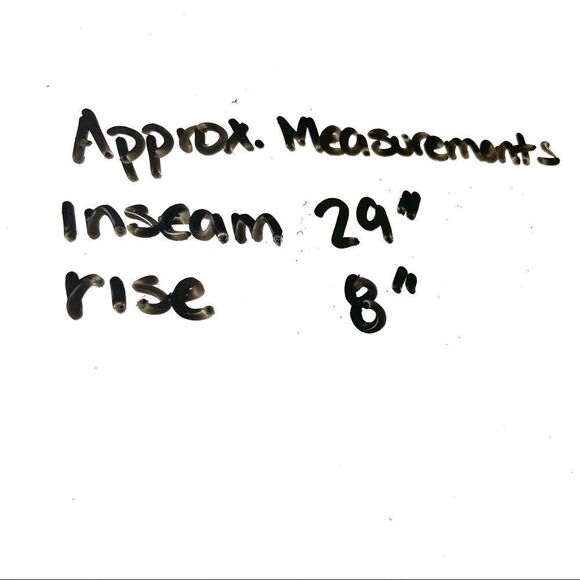 Approx. Measurements
Inseam 29"
rise 8"